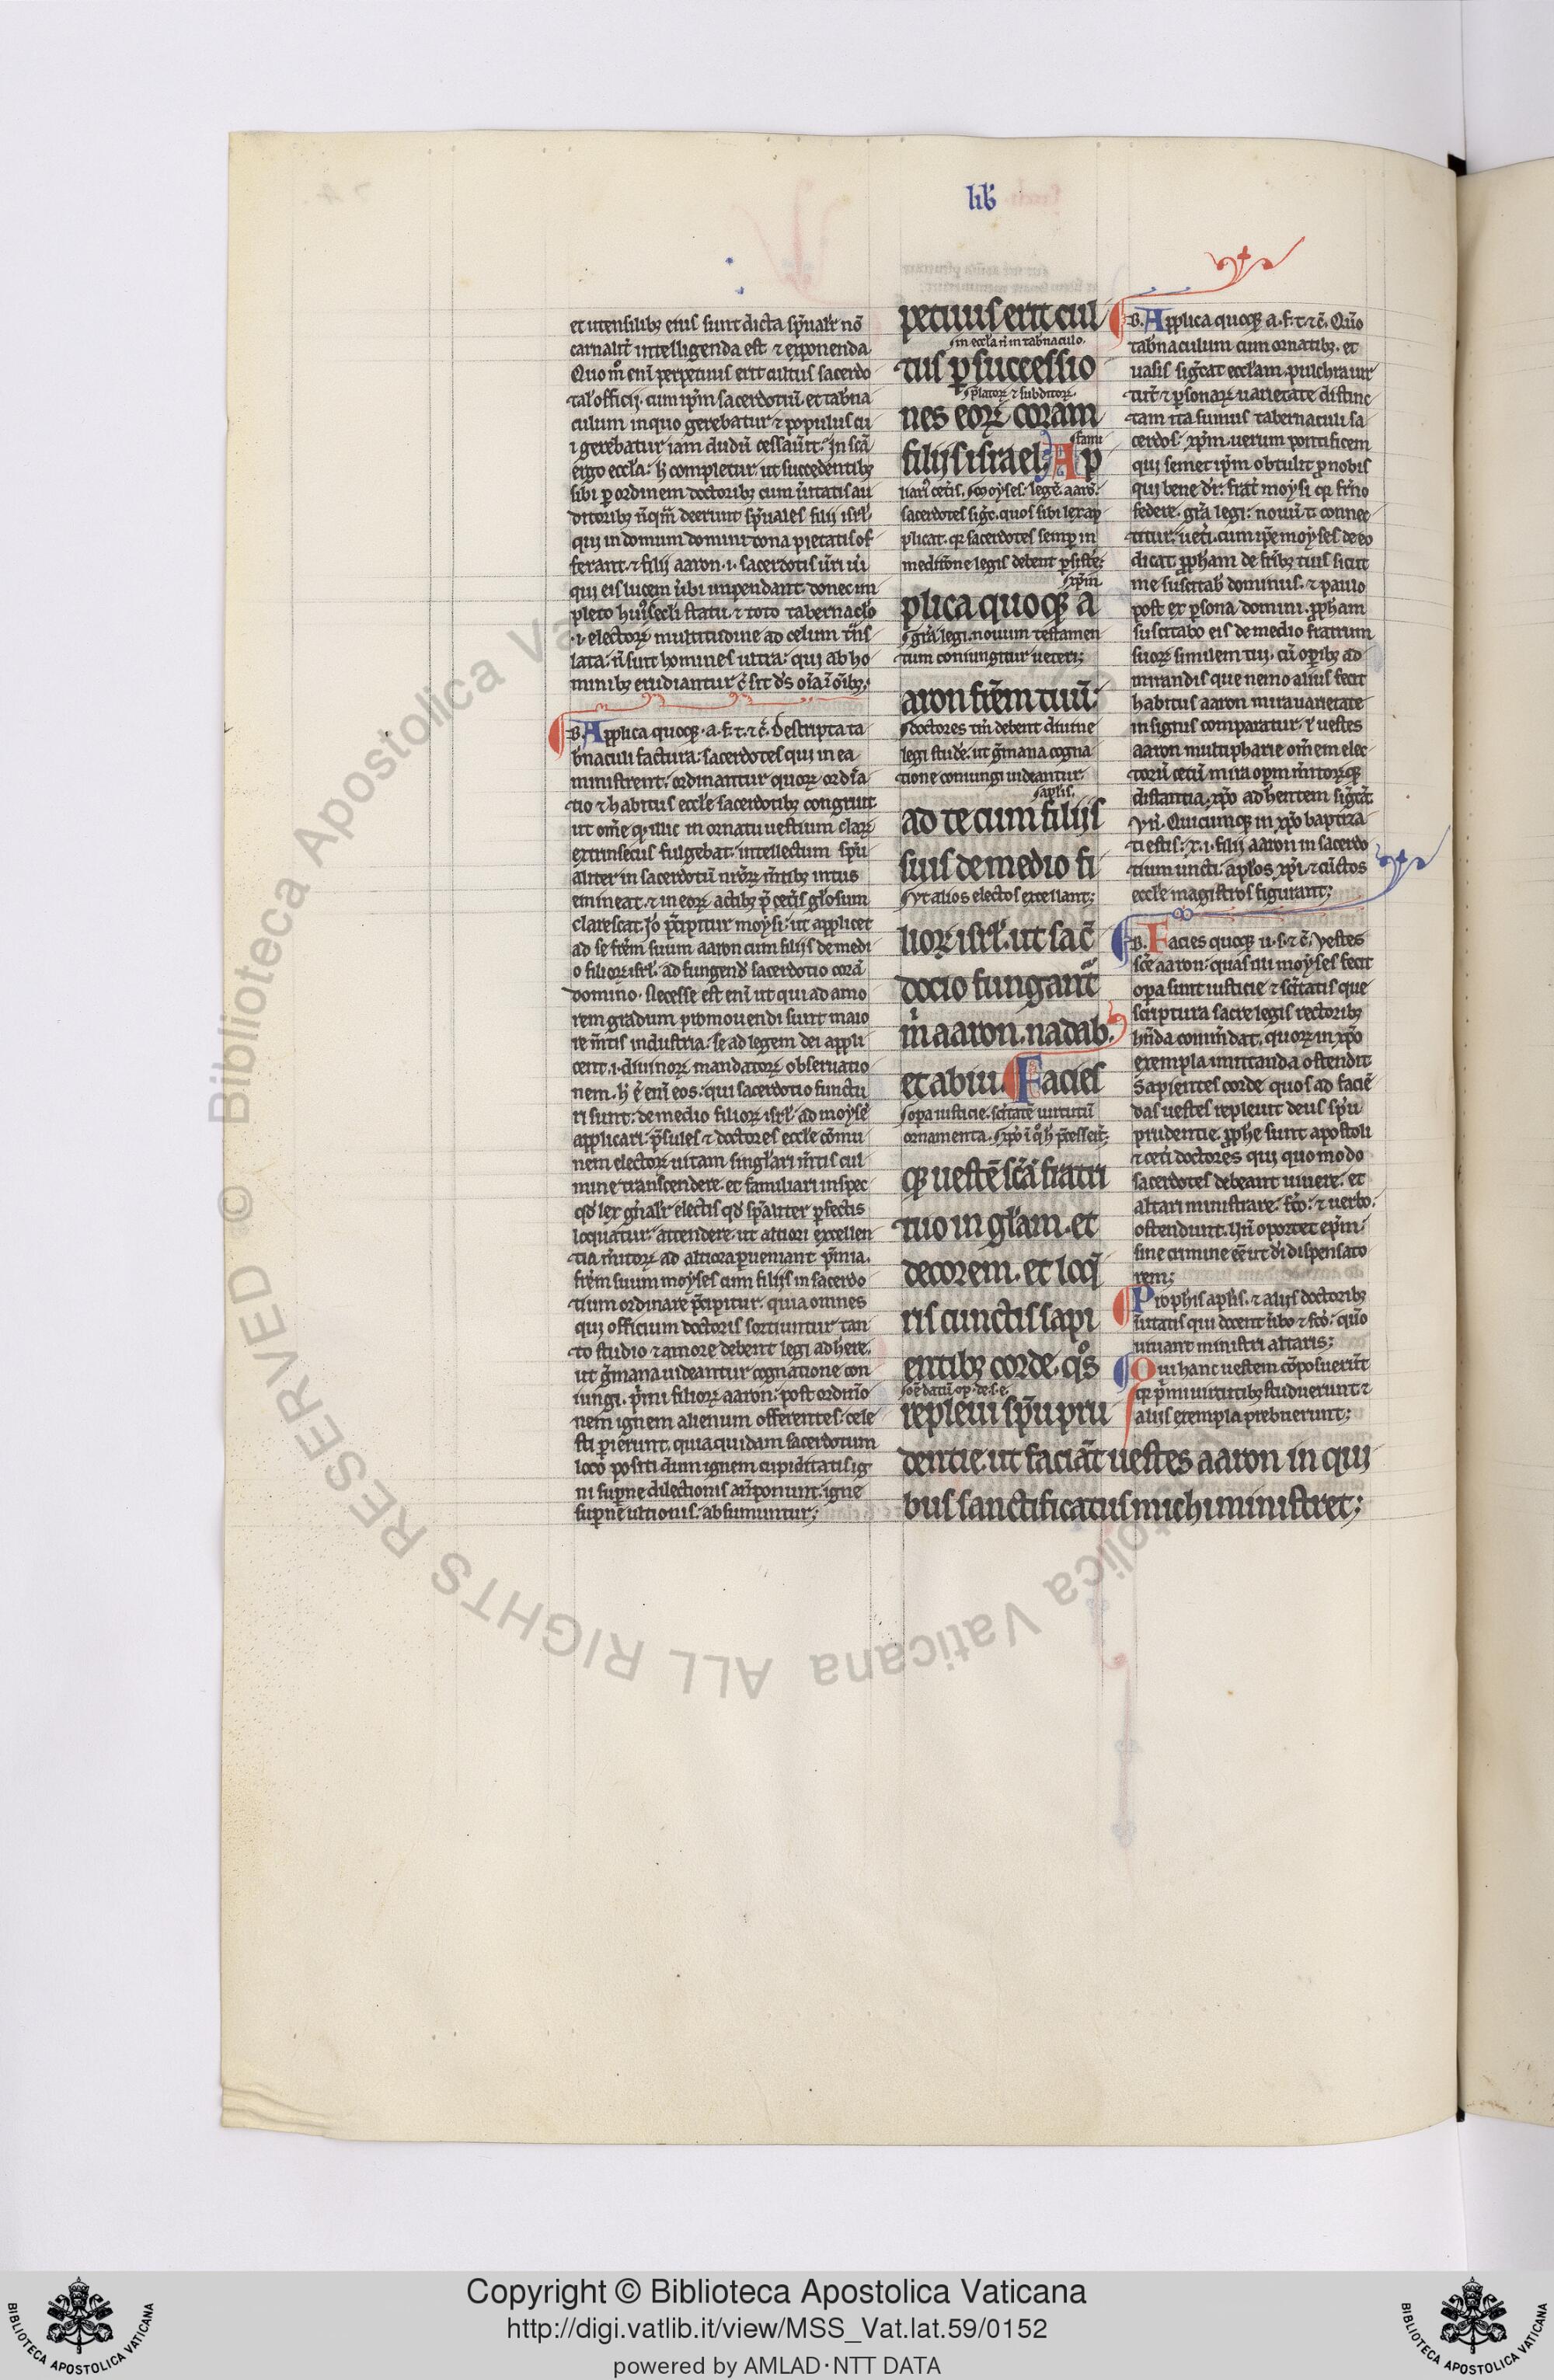 lib̃
et utensilibꝫ eius sunt dicta sp̄ualr̄ nō
carnalit̄ intelligenda est ⁊ exponenda
Quo m̊ eni perpetuus erit cultus sacerdo
tal' officij. cum ip̄m sacerdotiū. et tab̄na
culum in quo gerebatur ⁊ populus cu
i gerebatur iam dudū cessau̅it. In scā
ergo eccl̄a: h̄ completur ut succedentibꝫ
sibi ꝑ ordinem doctoribꝫ cum ūitatis au
ditoribꝫ nūqm̄ deerunt sp̄uales filij isrl̄.
qui in domum domini dona pietatis of
ferant. ⁊ filij aaron .i. sacerdotis
qui eis lucem ūbi impendant. donec im
pleto hui' secli statu. ⁊ toto tabernacl̄o
.i. electoꝝ multitudine ad celum t̄ns
lata: n̄ sint homines ultra: qui ab ho
minibꝫ erudiantur s̄ sit ds̄ oīa ī oībꝫ.
B. Applica quoqꝫ .a. f. t. ⁊ c̄. Descripta ta
b̄naculi factura: sacerdotes qui in ea
ministrent: ordinantur quoꝝ ordīa
tio ⁊ habitus eccl̄e sacerdotibꝫ congruit
ut om̄e qꝫ illic in ornatu uestium clarꝫ
extrinsecus fulgebat: intellectum sp̄u
aliter in sacerdotū nr̄oꝝ m̄tibꝫ intus
emineat. ⁊ in eoꝝ actibꝫ p̄ cet̄is gl̄osum
clarescat. Jo p̄cipitur moysi: ut applicet
ad se fr̄em suum aaron cum filijs de medi
o filioꝝ isrl̄. ad fungend̄ sacerdotio corā
domino. Necesse est eni ut qui ad amo
rem gradum promouendi sunt maio
re m̄tis industria: se ad legem dei appli
cent .i. diuinoꝝ mandatoꝝ obseruatio
nem. h̄ ē eni eos: qui sacerdotio functu
ri sunt: de medio filioꝝ isrl̄ ad moysē
applicari: p̄sules ⁊ doctores eccl̄e cōmu
nem electoꝝ uitam singl̄ari m̄tis cul
mine transcendere. et familiari inspec
qd̄ lex gn̄alr̄ electis qd̄ sp̄aliter ꝑfectis
loquatur attendere. ut altiori excellen
tia m̄itoꝝ ad altiora perueniant p̄mia.
fr̄em suum moyses cum filijs in sacerdo
tium ordinare p̄cipitur. quia omnes
qui officium doctoris sortiuntur tan
to studio ⁊ amore debent legi adhere.
ut ḡmana uideantur cognatione con
iungi. p̄mi filioꝝ aaron: post ordin̄io
nem ignem alienum offerentes: cele
sti pierunt. quia quidam sacerdotum
loco positi dum ignem cupiditatis ig
ni sup̄ne dilectionis an̄ponunt. igne
sup̄ne ultionis absumuntur;
petuus erit cul
in eccl̄a n̄ in tab̄naculo.
tus ꝑ successio
p̄latoꝝ ⁊ subditoꝝ.
nes eoꝝ coram
filijs israel; Ap
fami
liari' cet̄is. Moyses: lege. aarō:
sacerdotes sig̅t. quos sibi lex ap
plicat. qꝫ sacerdotes semꝑ in
meditōne legis debent ꝑsiste;
xp̄m
plica quoqꝫ a
gr̄a legi. nouum testamen
tum coniungitur ueteri;
aron fr̄em tuū:
doctores tm̄ debent diuine
legi stude. ut ḡmana cogna
tione coniungi uideantur.
aplīs.
ad te cum filijs
suis de medio fi
yt alios electos excellant;
lioꝝ isrl̄. ut sac̄
docio fungant̄
m̄ aaron. nadab.
et abiu. Facies
opa iusticie. sc̄itatē uirtutū
ornamenta. xp̄o ī q̊ h̄ p̄cesser̄t;
qꝫ uestē sc̄ā fratri
tuo in gl̄am. et
decorem. et loq̄
ris cunctis sapi
entibꝫ corde. qo̊s
oē datū op. de. s. e.
repleui sp̄u pru
dentie. ut faciāt uestes aaron in qui
bus sanctificatus michi ministret;
B. Applica quoqꝫ a. f. t. ⁊ c̄. Qm̊o
tab̄naculum cum ornatibꝫ. et
uasis sig̅cat eccl̄am. pulchra uir
tut̄ ⁊ ꝑsonaꝝ uarietate distinc
tam ita sumus tabernaculi sa
cerdos: xp̄m. uerum pontificem
qui semet ip̄m obtulit pro nobis
qui bene dr̄: frat̄ moysi qꝫ fr̄no
federe. gr̄a legi: nouū t̄ connec
titur: ueti. cum ip̄e moyses de eo
dicat ꝓph̄am de fr̄ibꝫ tuis sicut
me suscitab̄ dominus. ⁊ paulo
post ex ꝑsona domini. ꝓph̄am
suscitabo eis de medio fratrum
suoꝝ similem tui. cū opibꝫ ad
mirandis que nemo alius fecit
habitus aaron mira uarietate
insignis comparatur. ⁊ uestes
aaron multipharie om̄em elec
torū cetū mira opm m̄itoꝝqꝫ
distantia. xp̄o adherentem sig̅cāt.
yn̄. Quicumqꝫ in xp̄o baptiza
ti estis: ⁊. i. filij aaron in sacerdo
tium uncti: apl̄os xp̄i. ⁊ cūctos
eccl̄e magistros figurant;
B. Facies quoqꝫ u. s. ⁊ c̄. yestes
sc̄e aaron: quas illi moyses fecit
opa sunt iusticie ⁊ sc̄itatis que
scriptura sacre legis rectoribꝫ
hn̄da comīdat. quoꝝ in xp̄o
exempla imitanda ostendit
Sapientes corde quos ad faciē
das uestes repleuit deus sp̄u
prudentie. ꝓph̄e sunt apostoli
⁊ cet̄i doctores qui quomodo
sacerdotes debeant uiuere. et
altari ministrare. fc̄o: ⁊ uerbo.
ostendunt. Un̄ oportet ep̄m.
sine crimine ee ut di dispensato
rem;
Prophis apl̄is. ⁊ alijs doctoribꝫ
ūitatis qui docent ūbo ⁊ fc̄o: qm̊o
uiuant ministri altaris;
Qui hanc uestem cōposuerūt
qꝫ p̄mi uirtutibꝫ studuerunt ⁊
alijs exempla prebuerunt;
Copyright © Biblioteca Apostolica Vaticana
http://digi.vatlib.it/view/MSS_Vat.lat.59/0152
powered by AMLAD·NTT DATA
BIBLIOTECA APOSTOLICA VATICANA
BIBLIOTECA APOSTOLICA VATICANA